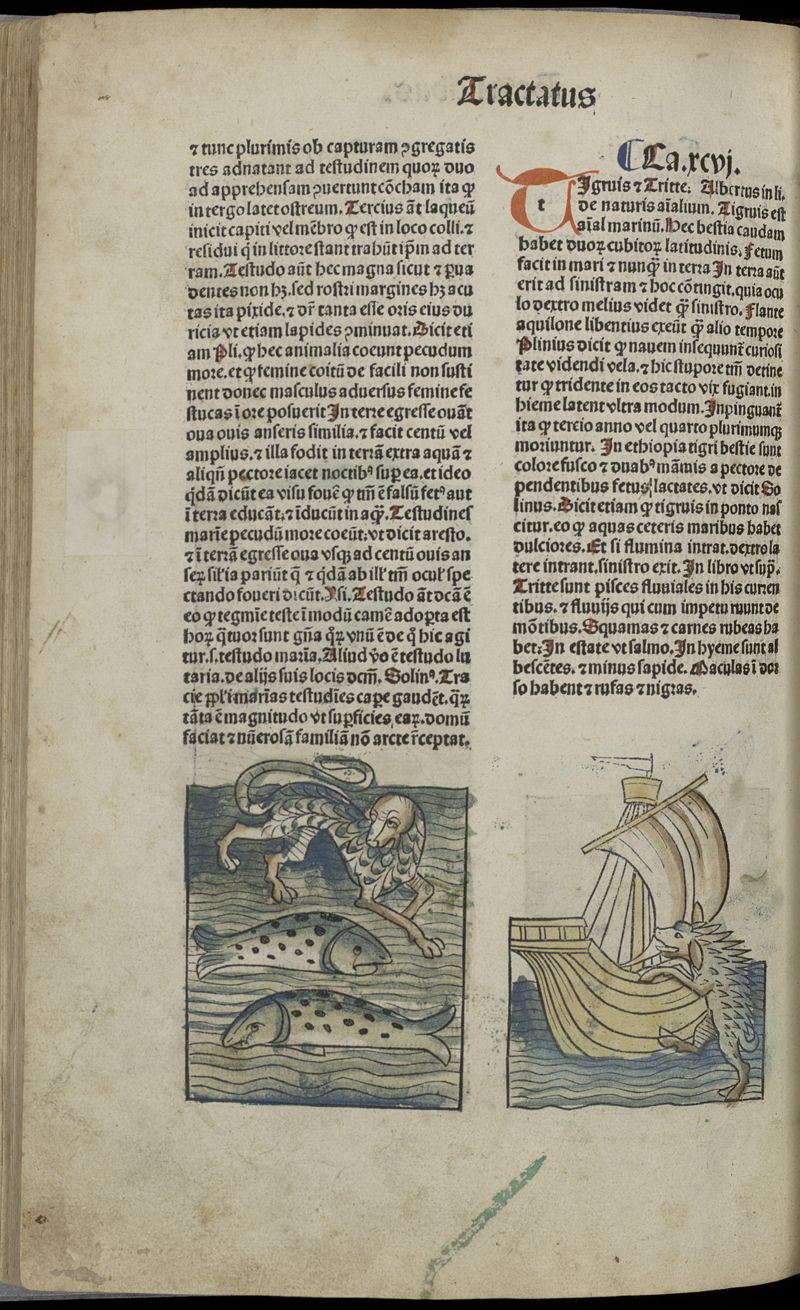 Tractatus
⁊ tunc plurimis ob capturam ꝯgregatis
tres adnatant ad testudinem quoꝝ duo
ad apprehensam ꝯuertunt cōcham ita ꝙ
in tergo latet ostreum. Tercius āt laqueū
inicit capiti vel mēbro ꝙ est in loco colli. ⁊
residui q̇ in littore stant trahūt ip̄m ad ter
ram. Testudo aūt hec magna sicut ⁊ ꝑua
dentes non hꝫ. sed rostri margines hꝫ acu
tas ita pixide. ⁊ dr̄ tanta esse oris eius du
ricia vt etiam lapides ꝯminuat. Dicit eti
am Pli. ꝙ hec animalia coeunt pecudum
more. et ꝙ femine coitū de facili non susti
nent donec masculus aduersus femine fe
stucas ī ore posuerit In terre egresse ouāt
oua ouis anseris similia. ⁊ facit centū vel
amplius. ⁊ illa fodit in terrā extra aquā ⁊
aliqn̄ pectore iacet noctibꝰ suꝑ ea. et ideo
q̇dā dicūt ea visu fouē ꝙ tm̄ ē falsū fetꝰ aut
ī terra educāt. ⁊ īducūt in aq̄. Testudines
marīe pecudū more coeūt. vt dicit aresto.
⁊ ī terrā egresse oua vsqꝫ ad centū ouis an
seꝝ sil'ia pariūt q̄ ⁊ q̇dā ab ill' tm̄ ocul' spe
ctando foueri dicūt. Ysi. Testudo āt dcā ē
eo ꝙ tegmīe teste ī modū camē adoꝑta est
hoꝝ q̇tuor sunt gn̄a q̄ꝝ vnū ē de q̇ hic agi
tur. s. testudo marīa. Aliud v̇o ē testudo lu
taria. de alijs suis locis dcm̄. Solinꝰ. Tra
cie ꝓꝑl'i marīas testudīes caꝑe gaudēt. q̄ꝝ
tāta ē magnitudo vt suꝑficies. eaꝝ. domū
faciat ⁊ nūerosā familiā nō arcte r̄ceptat.
Ca. xcvj.
Tigruis ⁊ Tritte. Albertus in li.
de naturis aīalium. Tigruis est
aīal marinū. Hec bestia caudam
habet duoꝝ cubitoꝝ latitudinis. Fetum
facit in mari ⁊ nunq̄ꝫ in terra In terra aūt
erit ad sinistram ⁊ hoc cōtingit. quia ocu
lo dextro melius videt q̄ꝫ sinistro. Flante
aquilone libentius exeūt q̄ꝫ alio tempore
Plinius dicit ꝙ nauem insequunt᷑ curiosi
tate videndi vela. ⁊ hic stupore tm̄ detine
tur ꝙ tridente in eos tacto vix fugiant. in
hieme latent vltra modum. Inpinguant᷑
ita ꝙ tercio anno vel quarto plurimumqꝫ
moriuntur. In ethiopia tigri bestie sunt
colore fusco ⁊ duabꝰ māmis a pectore de
pendentibus fetus lactates. vt dicit So
linus. Dicit etiam ꝙ tigruis in ponto nas
citur. eo ꝙ aquas ceteris maribus habet
dulciores. Et si flumina intrat. dextro la
tere intrant. sinistro exit. In libro vt sup̄.
Tritte sunt pisces fluuiales in his curren
tibus. ⁊ fluuijs qui cum impetu ruunt de
mōtibus. Squamas ⁊ carnes rubeas ha
bet. In estate vt salmo. In hyeme sunt al
bescētes. ⁊ minus sapide. Maculas ī dor
so habent ⁊ rufas ⁊ nigras.